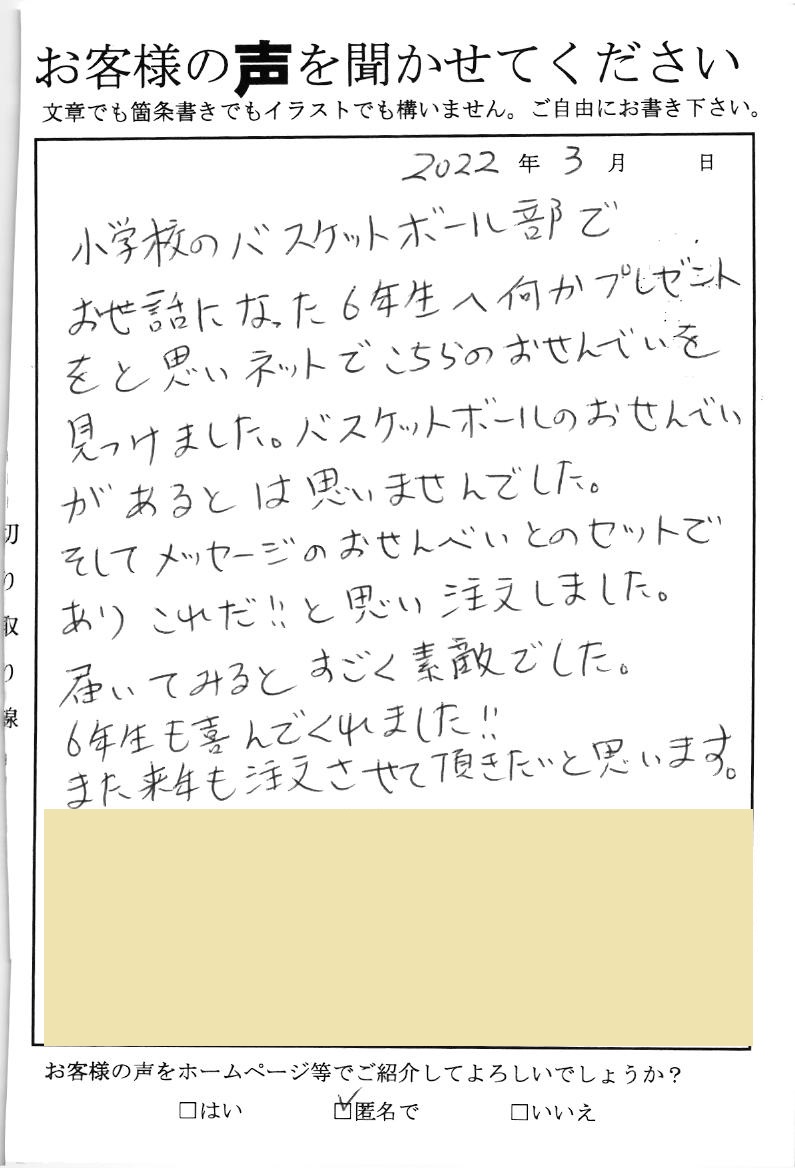 お客様の声を聞かせてください
文章でも箇条書きでもイラストでも構いません。ご自由にお書き下さい。
2022 年 3 月　　日
小学校のバスケットボール部で
お世話になった6年生へ何かプレゼント
をと思いネットでこちらのおせんべいを
見つけました。バスケットボールのおせんべい
があるとは思いませんでした。
そしてメッセージのおせんべいとのセットで
あり これだ!!と思い 注文しました。
届いてみると すごく素敵でした。
6年生も喜んでくれました!!
また来年も注文させて頂きたいと思います。
切り取り線
お客様の声をホームページ等でご紹介してよろしいでしょうか？
□はい　☑匿名で　□いいえ